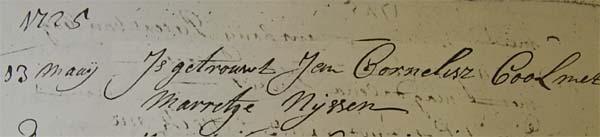 1725
13 maaÿ Is getrouwt Jan Cornelisz Cool met
Marretje Nijssen